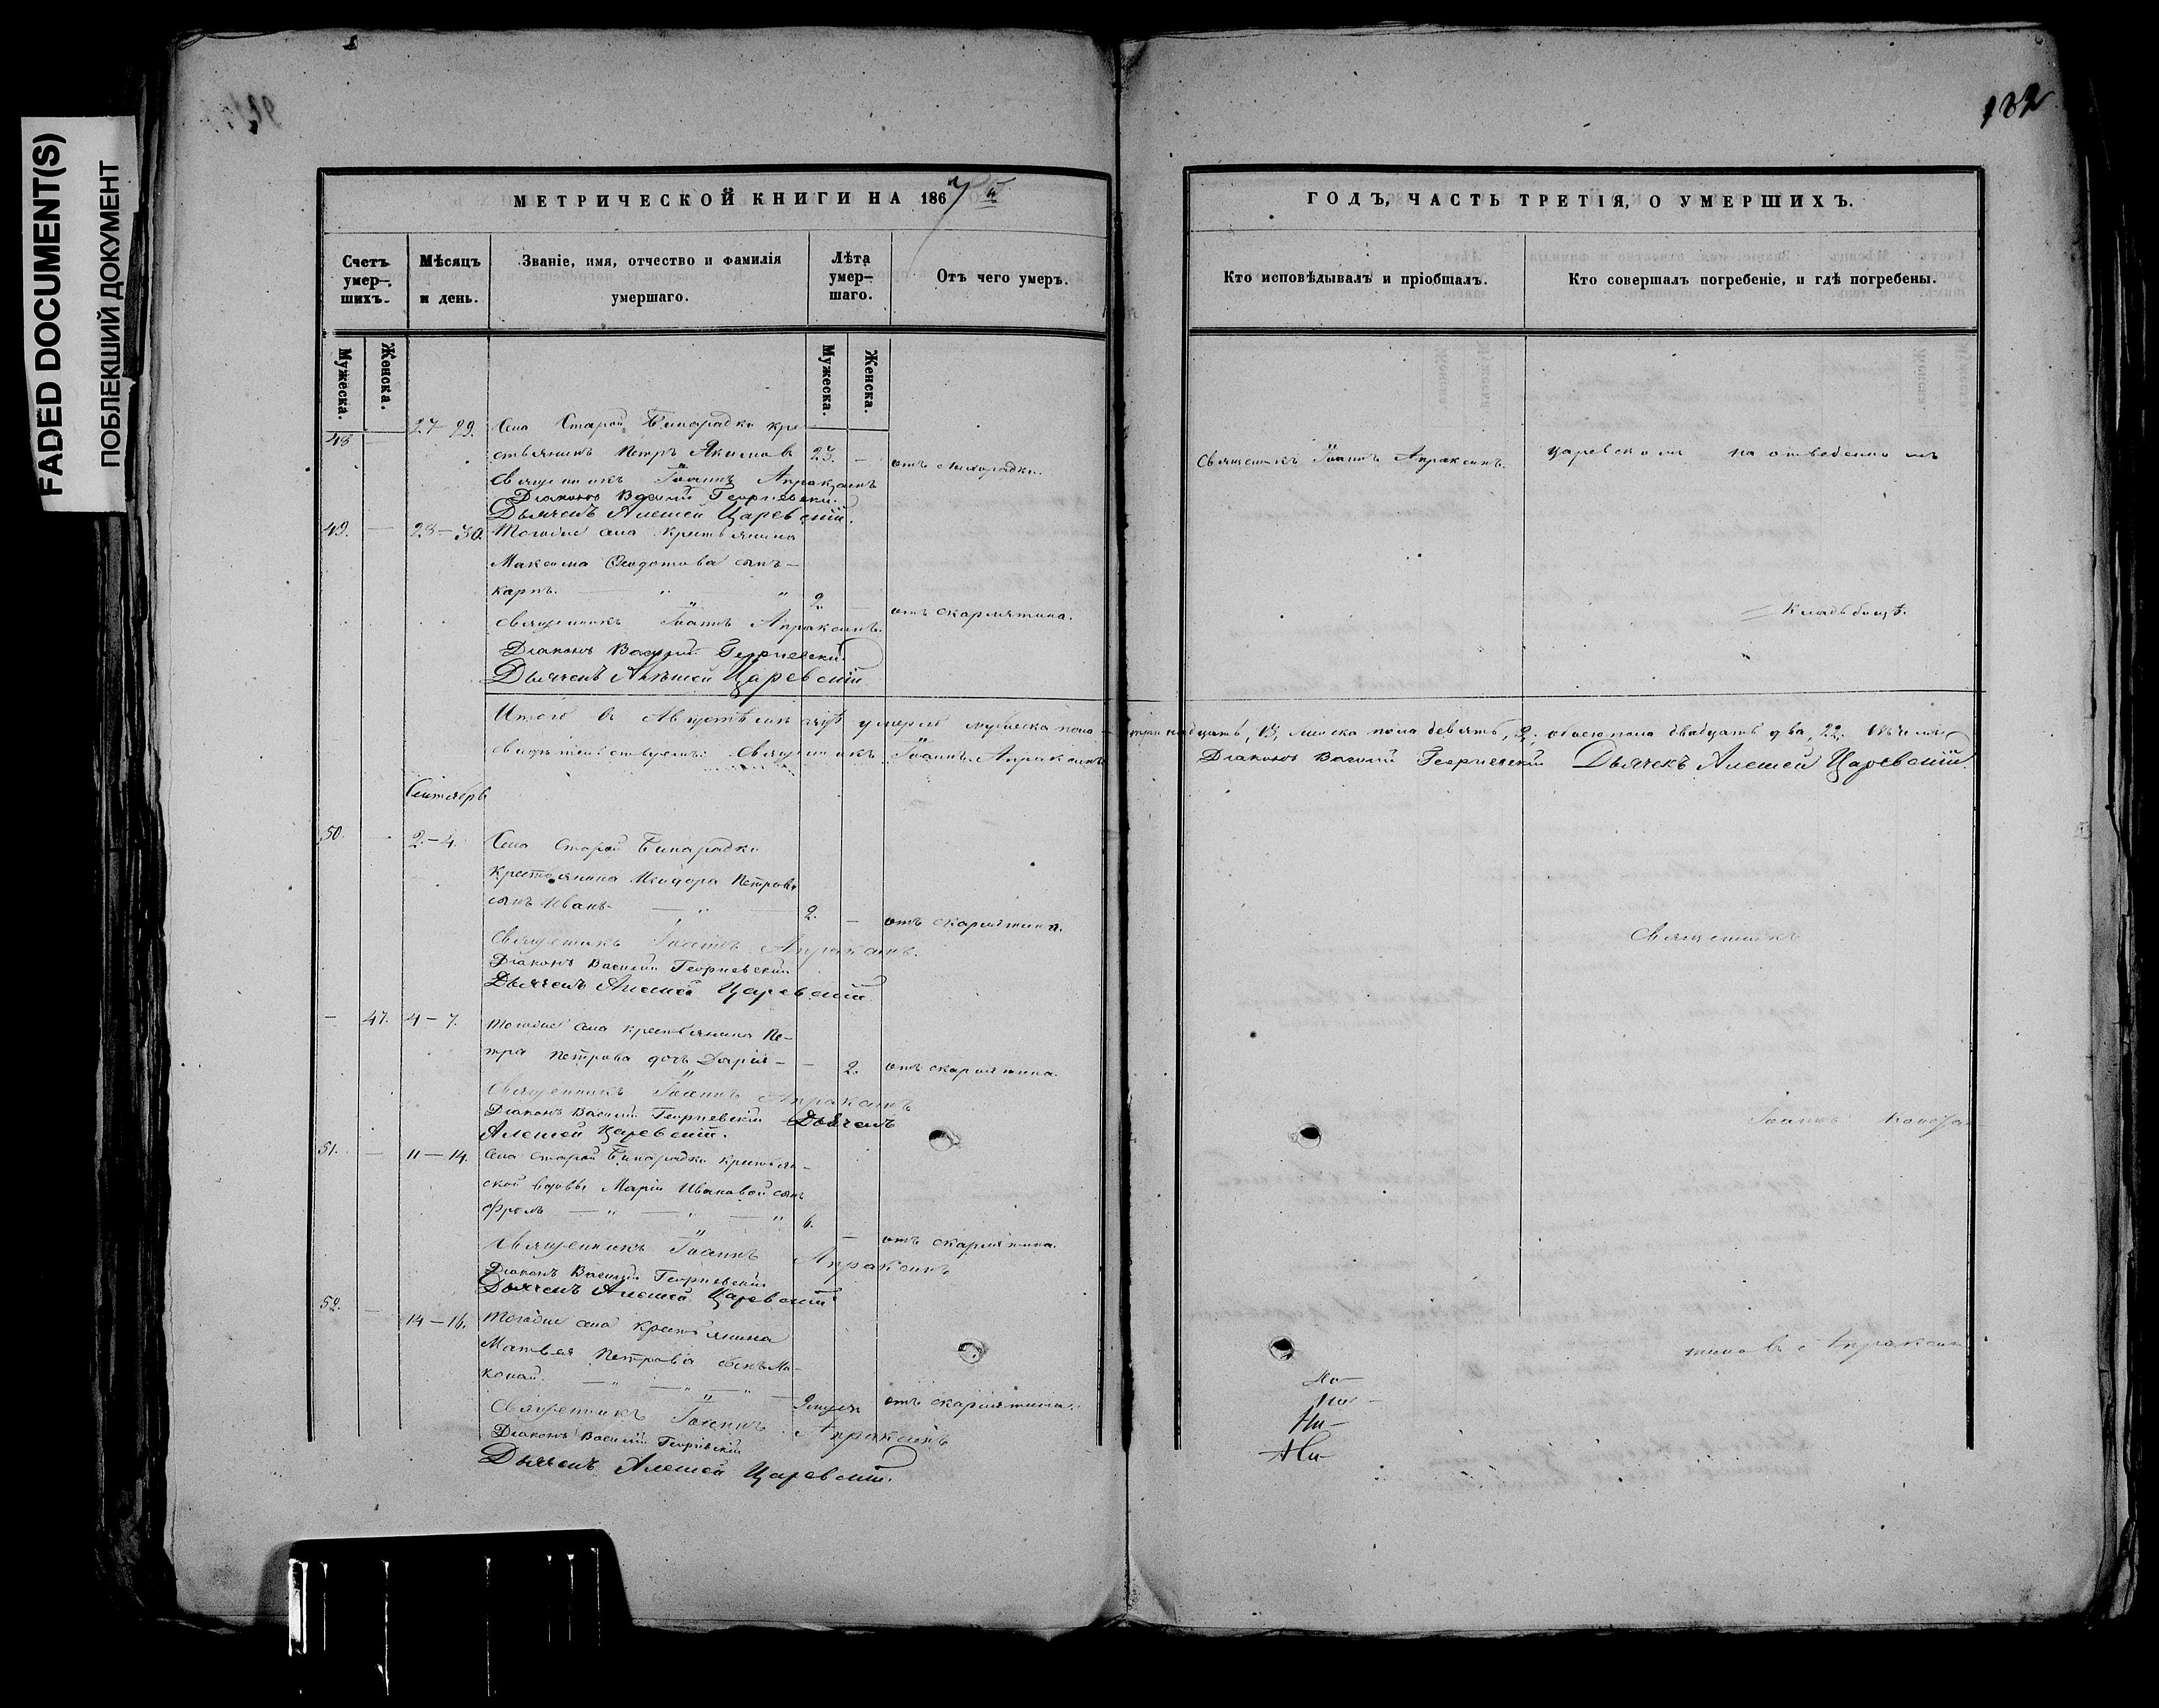 FADED DOCUMENT(S)
ПОБЛЕКШИЙ ДОКУМЕНТ
132
МЕТРИЧЕСКОЙ КНИГИ НА 1867й
Счетъ умер-шихъ.
Мѣсяцъ и день.
Званіе, имя, отчество и фамилія умершаго.
Лѣта умер-шаго.
Отъ чего умеръ.
Мужеска.
Женска.
Мужеска.
Женска.
48 — 27-29. Села Старой Бинарадки кре
стьянинъ Петръ Якимовъ 23. — отъ лихорадки.
Священникъ Іоаннъ Апраксинъ
Діаконъ Василій Георгіевскій
Дьячекъ Алексей Царевскій.
49. — 28-30. Тогоже села крестьянина
Максима Ѳеодотова сынъ-
Карпъ. 2. — отъ скарлятина.
Священникъ Іоаннъ Апраксинъ.
Діаконъ Василій Георгіевскій
Дьячекъ Алексей Царевскій
Итого въ Августѣ умерло мужеска пола
Священникъ Іоаннъ Апраксинъ
Сентябрь
50. 2-4. Села Старой Бинарадки
крестьянина Петрова
сынъ Иванъ 2. — отъ скарлятина.
Священникъ Іоаннъ Апраксинъ.
Діаконъ Василій Георгіевскій
Дьячекъ Алексей Царевскій
— 47. 4-7. Тогоже села крестьянина Пе-
тра Петрова дочь Дарія — 2. отъ скарлятина.
Священникъ Іоаннъ Апраксинъ
Діаконъ Василій Георгіевскій Дьячекъ
Алексей Царевскій.
51. — 11-14. Села Старой Бинарадки крестьян-
ской вдовы Маріи Ивановой сынъ
Фролъ 6. — отъ скарлятина.
Священникъ Іоаннъ Апраксинъ
Діаконъ Василій Георгіевскій
Дьячекъ Алексей Царевскій
52. — 14-16. Тогоже села крестьянина
Матвея Петрова сынъ
отъ скарлятина.
Священникъ Іоаннъ Апраксинъ
Діаконъ Василій Георгіевскій
Дьячекъ Алексей Царевскій.
ГОДЪ, ЧАСТЬ ТРЕТІЯ, О УМЕРШИХЪ.
Кто исповѣдывалъ и пріобщалъ.
Кто совершалъ погребеніе, и гдѣ погребены.
Священникъ Іоаннъ Апраксинъ. на отведенномъ
Кладбищѣ.
тринадцать, 13, женска пола девять, 9, обоего пола двадцать два, 22.
Діаконъ Василій Георгіевскій Дьячекъ Алексей Царевскій.
Священникъ
Іоаннъ
Апраксин